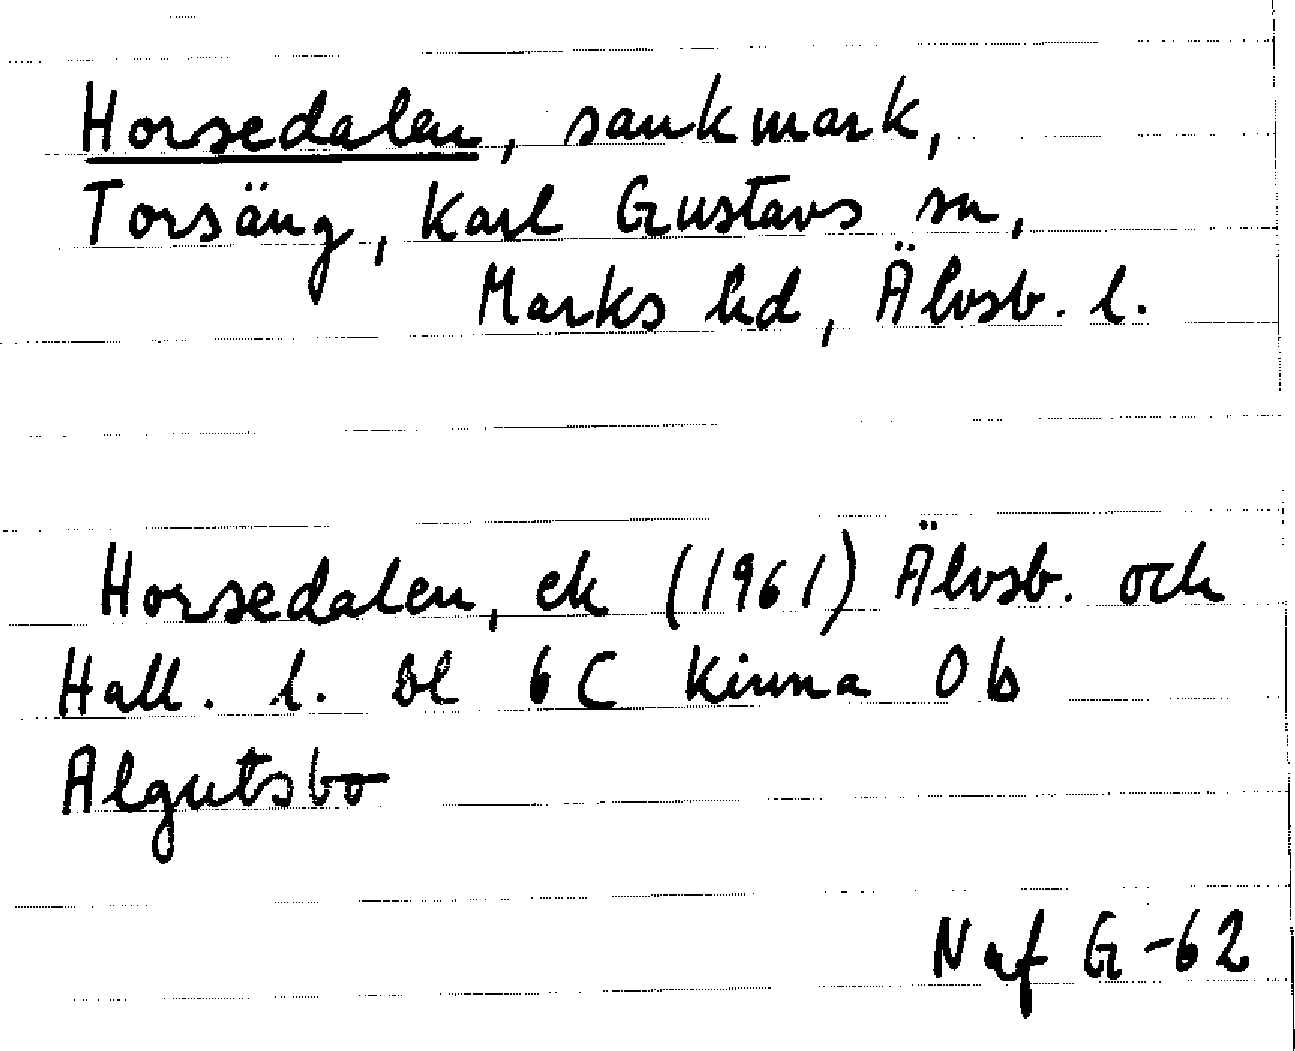 Horsedalen, sankmark,
Torsäng, Karl Gustavs sn,
Marks hd, Älvsb. l.
Horsedalen, ek (1961) Älvsb. och
Hall. l. Bl 6 C Kinna 0 b
Algutsbo
Naf G-62